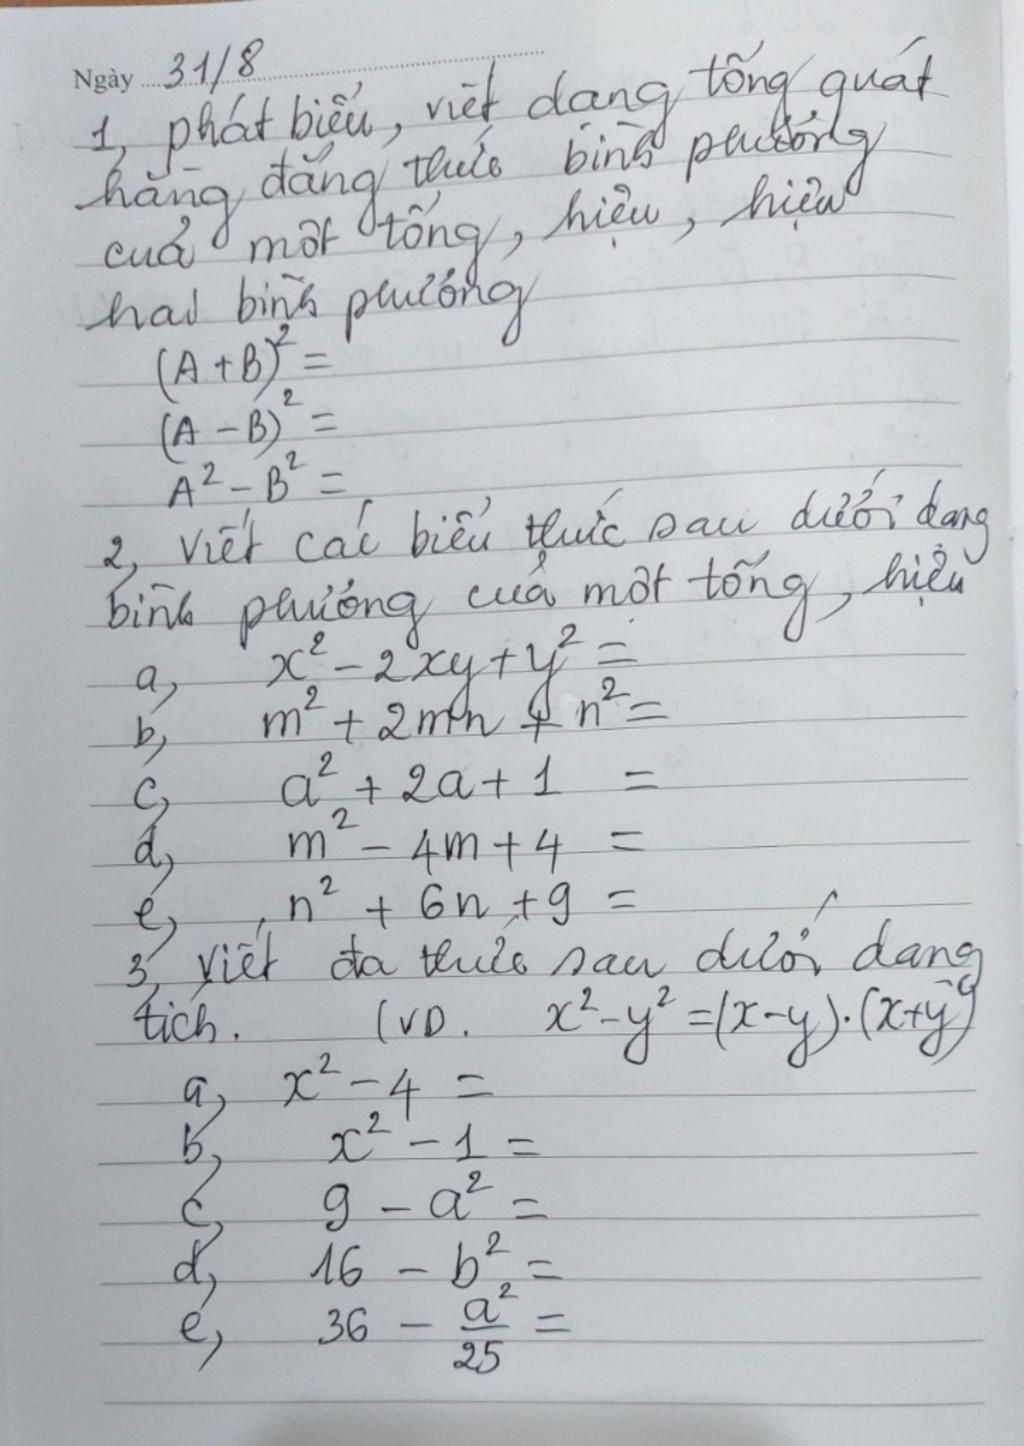 Ngày 31/8
1, phát biểu, viết dạng tổng quát
hằng đẳng thức bình phương
của một tổng, hiệu, hiệu
hai bình phương
(A + B)² =
(A - B)² =
A² - B² =
2, Viết các biểu thức sau dưới dạng
bình phương của một tổng, hiệu
a, x² - 2xy + y² =
b, m² + 2mn + n² =
c, a² + 2a + 1 =
d, m² - 4m + 4 =
e, n² + 6n + 9 =
3, Viết đa thức sau dưới dạng
tích. (VD. x² - y² = (x-y).(x+y)
a, x² - 4 =
b, x² - 1 =
c, 9 - a² =
d, 16 - b² =
e, 36 - a²/25 =